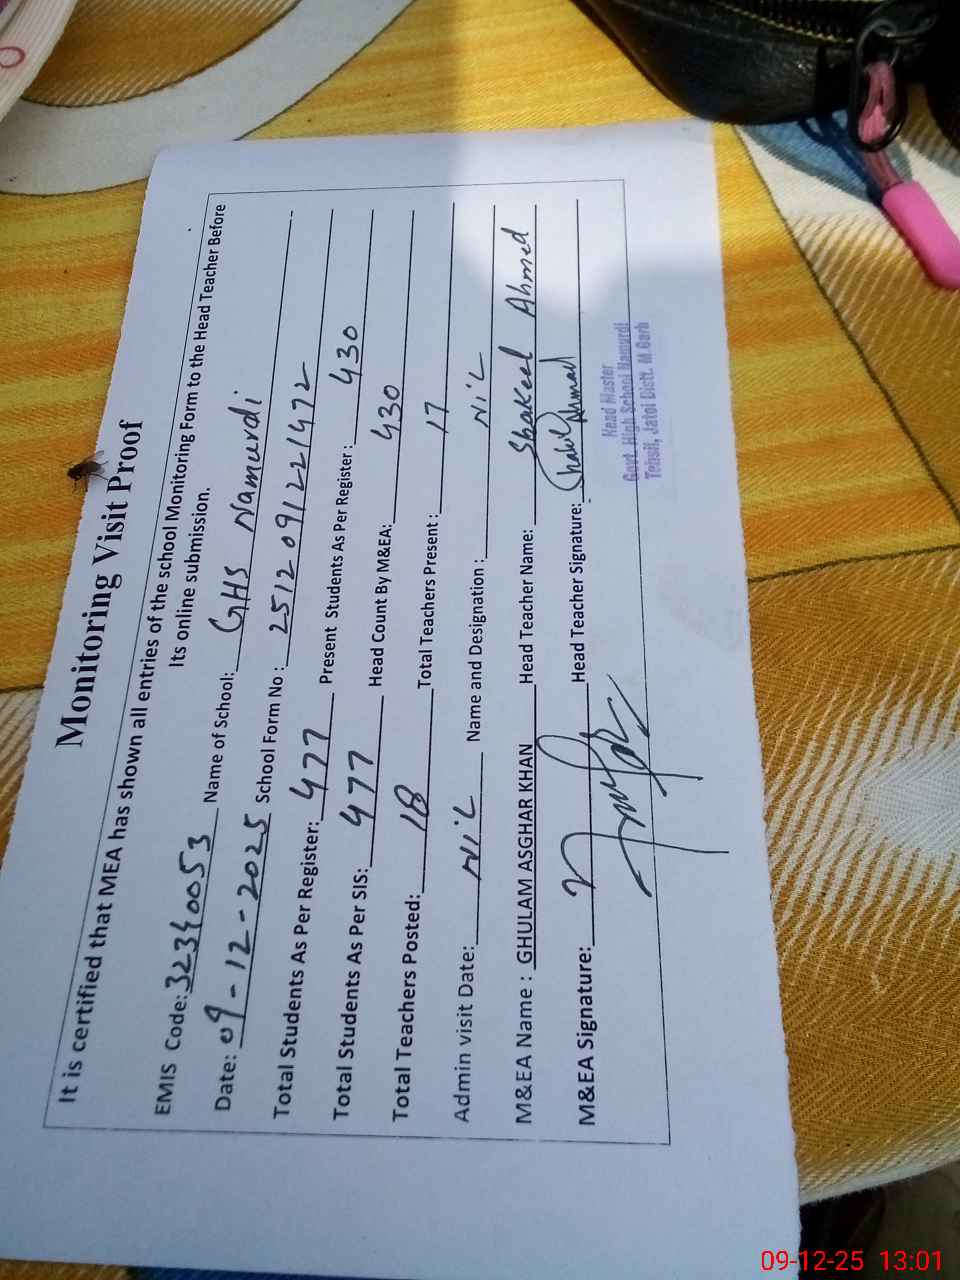 Monitoring Visit Proof
It is certified that MEA has shown all entries of the school Monitoring Form to the Head Teacher Before
Its online submission.
EMIS Code: 32340053 Name of School: GHS Namurdi
Date: 09-12-2025 School Form No : 2512091221472
Total Students As Per Register: 477 Present Students As Per Register : 430
Total Students As Per SIS: 477 Head Count By M&EA: 430
Total Teachers Posted: 18 Total Teachers Present : 17
Admin visit Date: Nil Name and Designation : Nil
M&EA Name : GHULAM ASGHAR KHAN Head Teacher Name: Shakeel Ahmed
M&EA Signature: Head Teacher Signature: Shakil Ahmad
Head Master
Govt. High School Namurdi
Tehsil, Jatoi Distt. M.Garh
09-12-25 13:01